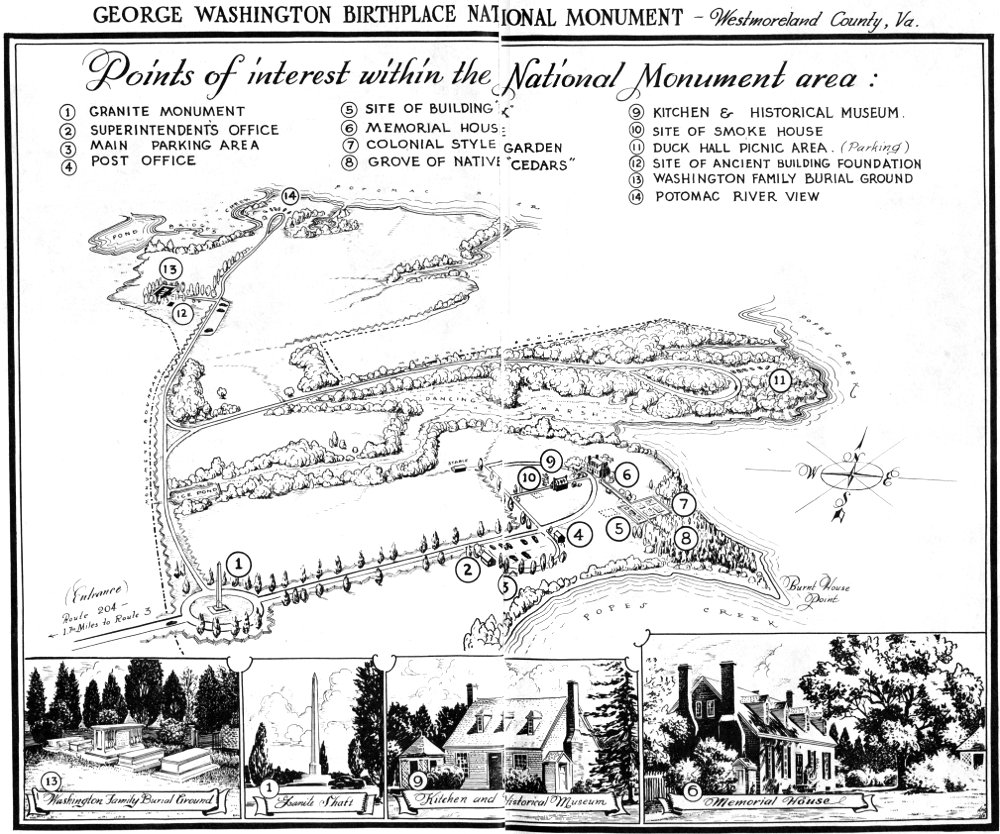 GEORGE WASHINGTON BIRTHPLACE NATIONAL MONUMENT - Westmoreland County, Va.
Points of interest within the National Monument area :
1 GRANITE MONUMENT
2 SUPERINTENDENT'S OFFICE
3 MAIN PARKING AREA
4 POST OFFICE
5 SITE OF BUILDING "X"
6 MEMORIAL HOUSE
7 COLONIAL STYLE GARDEN
8 GROVE OF NATIVE "CEDARS"
9 KITCHEN & HISTORICAL MUSEUM.
10 SITE OF SMOKE HOUSE
11 DUCK HALL PICNIC AREA. (Parking)
12 SITE OF ANCIENT BUILDING FOUNDATION
13 WASHINGTON FAMILY BURIAL GROUND
14 POTOMAC RIVER VIEW
POTOMAC R
ER
14
POND
BRIDGES CREEK
13
12
POPES CREEK
11
DANCING MARSH
STABLE
9
10
6
W
E
S
ICE POND
7
5
8
4
1
2
3
(Entrance)
Route 204 -
1.7 Miles to Route 3
Burnt House
Point
POPES CREEK
13
Washington Family Burial Ground
1
Granite Shaft
9
Kitchen and Historical Museum
6
Memorial House